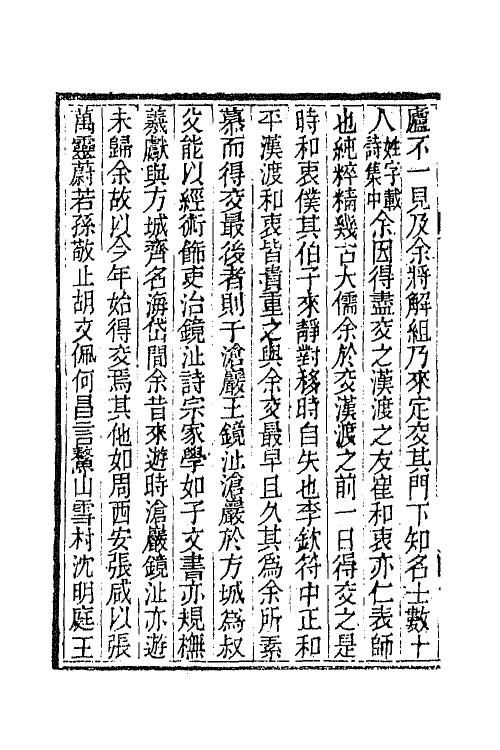 廬不一見及余將解組乃來定交其門下知名士數十
人姓字載詩集中余因得盡交之漢渡之友崔和衷亦仁表師
也純粹精幾古大儒余於交漢渡之前一日得交之是
時和衷僕其伯子來靜對移時自失也李欽符中正和
平漢渡和衷皆貴重之與余交最早且久其為余所素
慕而得交最後者則于滄巖王鏡沚滄巖於方城為叔
父能以經術飾吏治鏡沚詩宗家學如子文書亦規橅
羲獻與方城齊名海岱間余昔來遊時滄巖鏡沚亦遊
未歸余故以今年始得交焉其他如周西安張咸以張
萬靈蔚若孫敬止胡文佩何昌言鰲山雪村沈明庭王